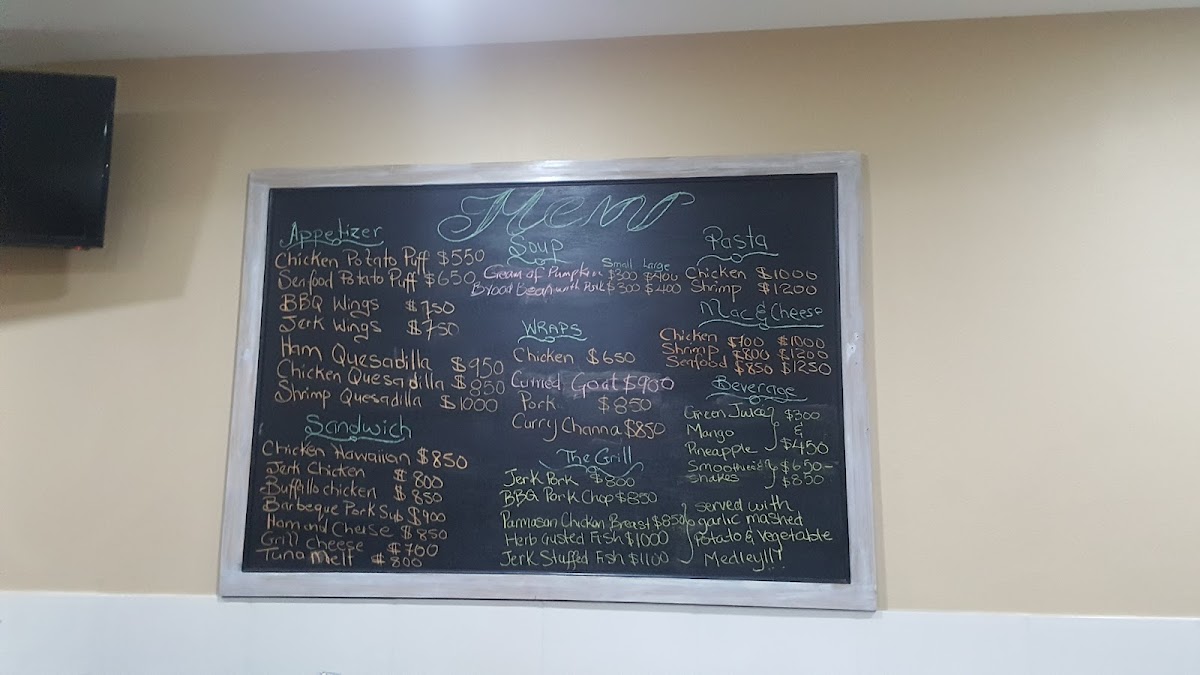 Menu
Appetizer
Chicken Potato Puff $550
Seafood Potato Puff $650
BBQ Wings $750
Jerk Wings $750
Ham Quesadilla $950
Chicken Quesadilla $850
Shrimp Quesadilla $1000
Sandwich
Chicken Hawaiian $850
Jerk Chicken $800
Buffillo chicken $850
Barbeque Pork Sub $900
Ham and Cheese $850
Grill cheese $700
Tuna Melt $800
Soup
Small Large
Cream of Pumpkin $300 $400
Broad Bean with Pork $300 $400
WRAPS
Chicken $650
Curried Goat $900
Pork $850
Curry Channa $850
The Grill
Jerk Pork $800
BBQ Pork Chop $850
Parmasan Chicken Breast $850
Herb Custed Fish $1000
Jerk Stuffed Fish $1100
Pasta
Chicken $1000
Shrimp $1200
Mac & Cheese
Chicken $700 $1000
Shrimp $800 $1200
Seafood $850 $1250
Beverage
Green Juice $300
Mango &
Pineapple $450
Smoothies $650-
shakes $850
served with
garlic mashed
Potato & Vegetable
Medley!!!